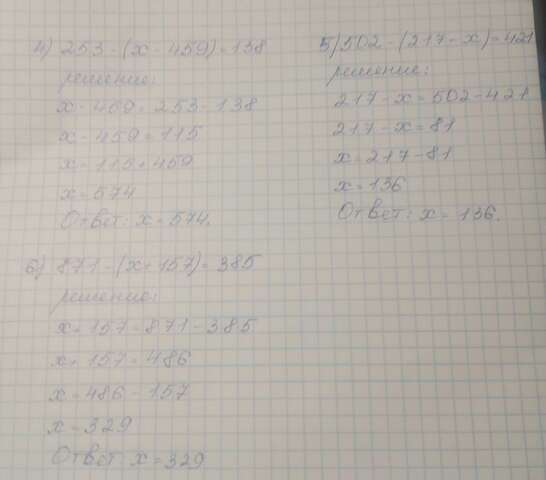 4) 253 - (x - 459) = 138
решение:
x - 459 = 253 - 138
x - 459 = 115
x = 115 + 459
x = 574
Ответ: x = 574.
5) 502 - (217 - x) = 421
решение:
217 - x = 502 - 421
217 - x = 81
x = 217 - 81
x = 136
Ответ: x = 136.
6) 871 - (x + 157) = 385
решение:
x + 157 = 871 - 385
x + 157 = 486
x = 486 - 157
x = 329
Ответ x = 329